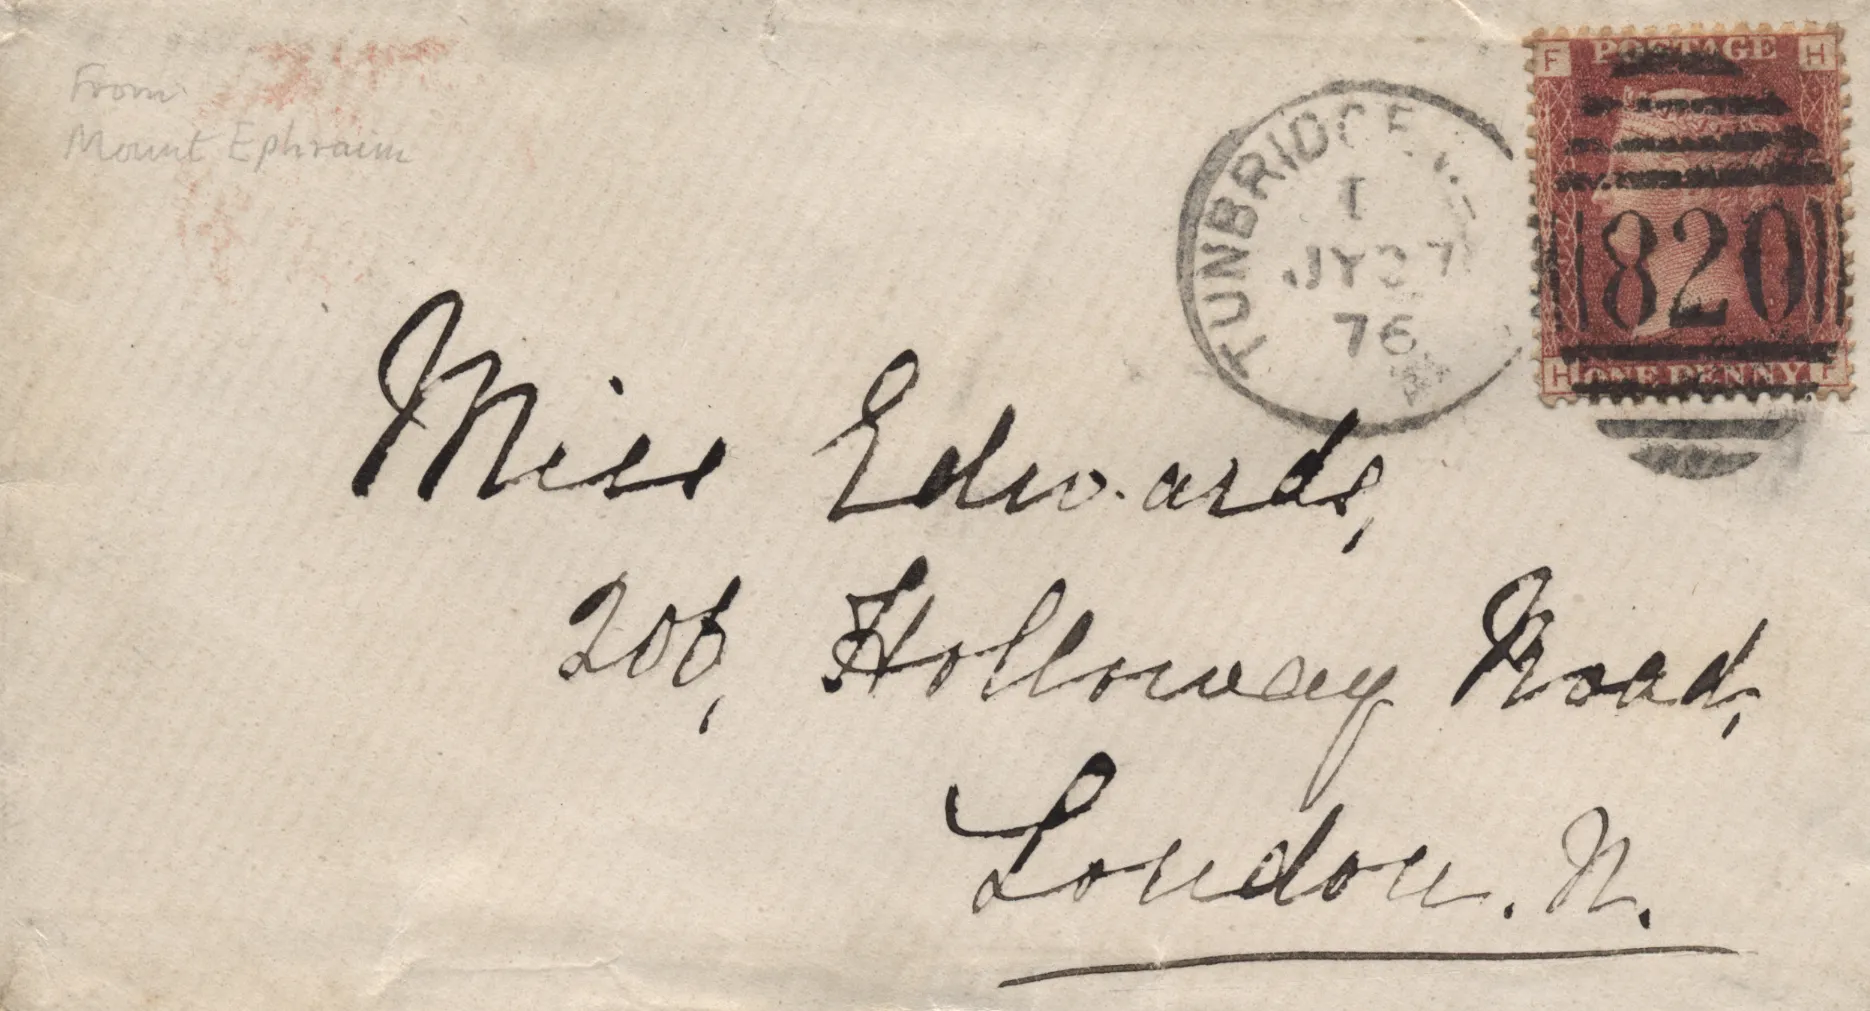 From
Mount Ephraim
TUNBRIDGE
JY 27
76
F POSTAGE H
820
H ONE PENNY F
Miss Edwards,
206, Holloway Road,
London. N.